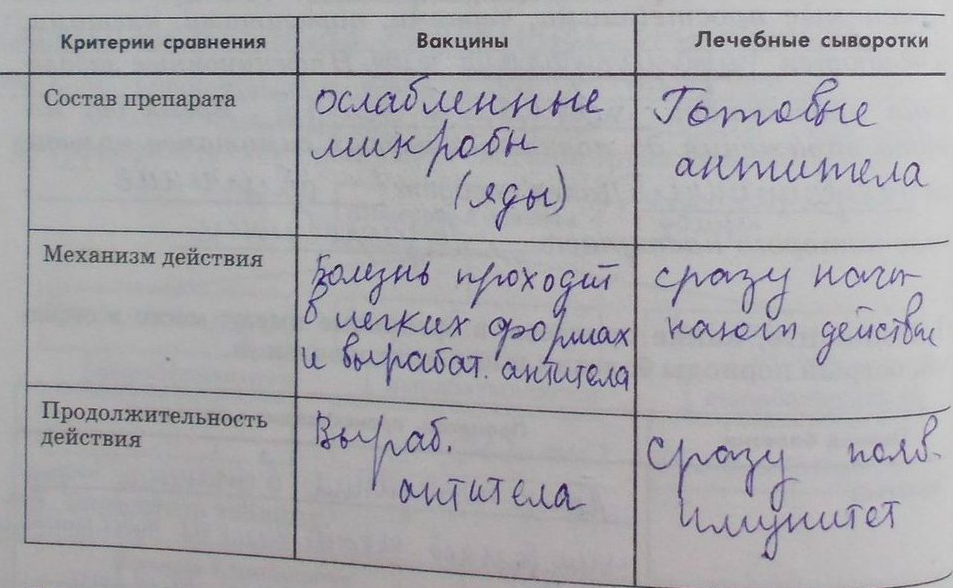 Критерии сравнения
Вакцины
Лечебные сыворотки
Состав препарата
ослабленные
микробы
(яды)
Готовые
антитела
Механизм действия
Болезнь проходит
в легких формах
и вырабат. антитела
сразу начи-
нают действие
Продолжительность
действия
Выраб.
антитела
Сразу появ.
имунитет